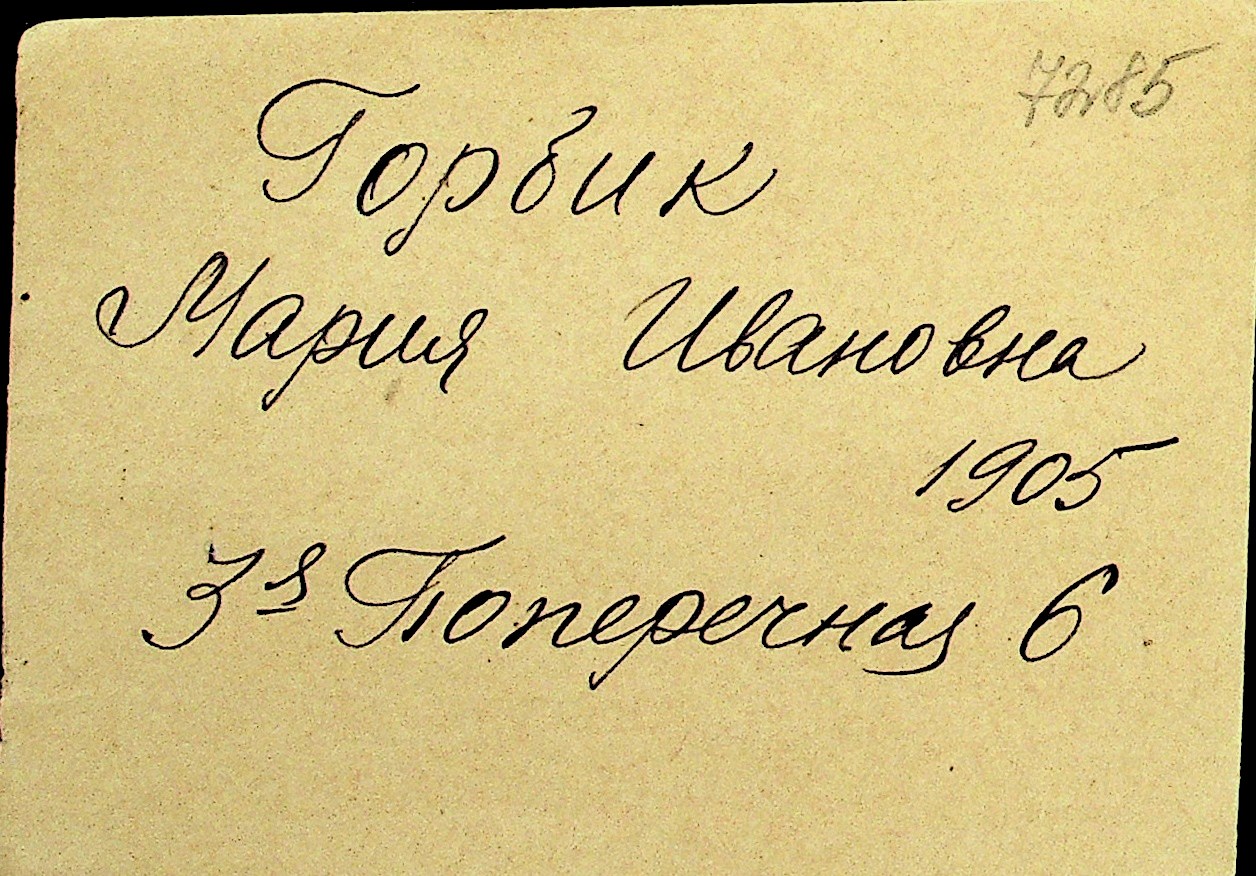 7285
Горбик
Мария Ивановна
1905
3я Поперечная 6